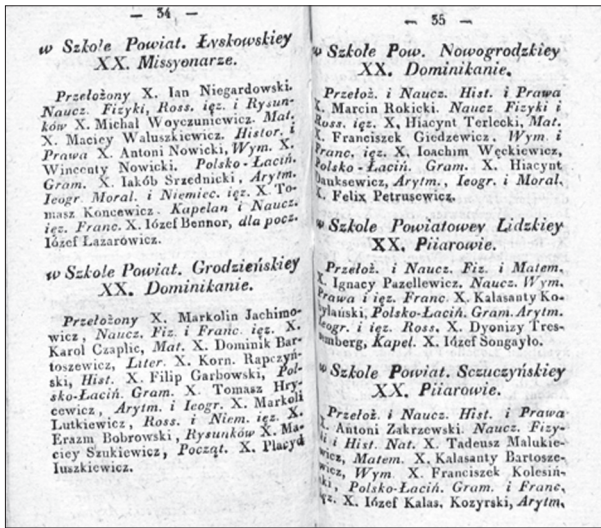 — 34 —
w Szkole Powiat. Łyskowskiey
XX. Missyonarze.
Przełożony X. Ian Niegardowski.
Naucz. Fizyki, Ross. ięz. i Rysun-
ków X. Michał Woyczuniewicz. Mat.
X. Maciey Waluszkiewicz. Histor. i
Prawa X. Antoni Nowicki, Wym. X.
Wincenty Nowicki. Polsko-Łaciń.
Gram. X. Iakób Srzednicki, Arytm.
Ieogr. Moral. i Niemiec. ięz. X. To-
masz Koncewicz. Kapelan i Naucz.
ięz. Franc. X. Iózef Bennor, dla pocz.
Iózef Łazarowicz.
w Szkole Powiat. Grodzieńskiey
XX. Dominikanie.
Przełożony X. Markolin Jachimo-
wicz, Naucz. Fiz. i Franc. ięz. X.
Karol Czaplic, Mat. X. Dominik Bar-
toszewicz, Liter. X. Korn. Rapczyń-
ski, Hist. X. Filip Garbowski, Pol-
sko-Łaciń. Gram. X. Tomasz Hry-
cewicz, Arytm. i Ieogr. X. Markoli
Lutkiewicz, Ross. i Niem. ięz. X.
Erazm Bobrowski, Rysunków X. Ma-
ciey Szukiewicz, Począt. X. Placyd
Iuszkiewicz.
— 35 —
w Szkole Pow. Nowogrodzkiey
XX. Dominikanie.
Przełoż. i Naucz. Hist. i Prawa
X. Marcin Rokicki. Naucz Fizyki i
Ross. ięz. X, Hiacynt Terlecki, Mat.
X. Franciszek Giedzewicz. Wym. i
Franc. ięz. X. Ioachim Węckiewicz,
Polsko-Łaciń. Gram. X. Hiacynt
Dauksewicz, Arytm., Ieogr. i Moral.
X. Felix Petrusewicz.
w Szkole Powiatowey Lidzkiey
XX. Piiarowie.
Przełoż. i Naucz. Fiz. i Matem.
X. Ignacy Pazellewicz. Naucz. Wym.
Prawa i ięz. Franc. X. Kalasanty Ko-
byłański, Polsko-Łaciń. Gram. Arytm.
Ieogr. i ięz. Ross. X. Dyonizy Tres-
emberg, Kapel. X. Iózef Songayło.
w Szkole Powiat. Sczuczyńskiey
XX. Piiarowie.
Przełoż. i Naucz. Hist. i Prawa
X. Antoni Zakrzewski. Naucz. Fizy-
ki i Hist. Nat. X. Tadeusz Malukie-
wicz, Matem. X. Kalasanty Bartosze-
wicz, Wym. X. Franciszek Kolesiń-
ski, Polsko-Łaciń. Gram. i Franc.
ięz. X. Iózef Kalas. Kozyrski, Arytm.